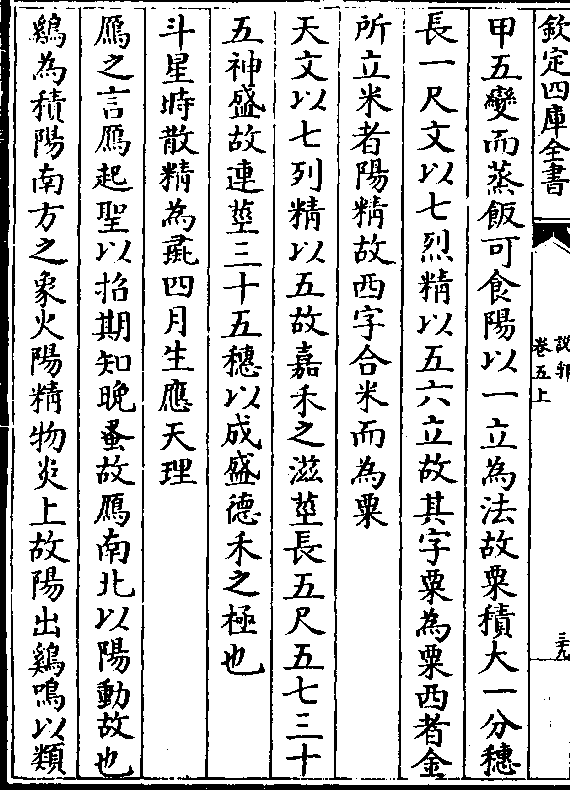 欽定四庫全書
說郛
卷五上
三九
甲五變而蒸飯可食陽以一立為法故粟積大一分穗
長一尺文以七烈精以五六立故其字粟為粟西者金
所立米者陽精故西字合米而為粟
天文以七列精以五故嘉禾之滋莖長五尺五七三十
五神盛故連莖三十五穗以成盛德禾之極也
斗星時散精為彘四月生應天理
鴈之言鴈起聖以招期知晚蚤故鴈南北以陽動故也
鷄為積陽南方之象火陽精物炎上故陽出鷄鳴以類